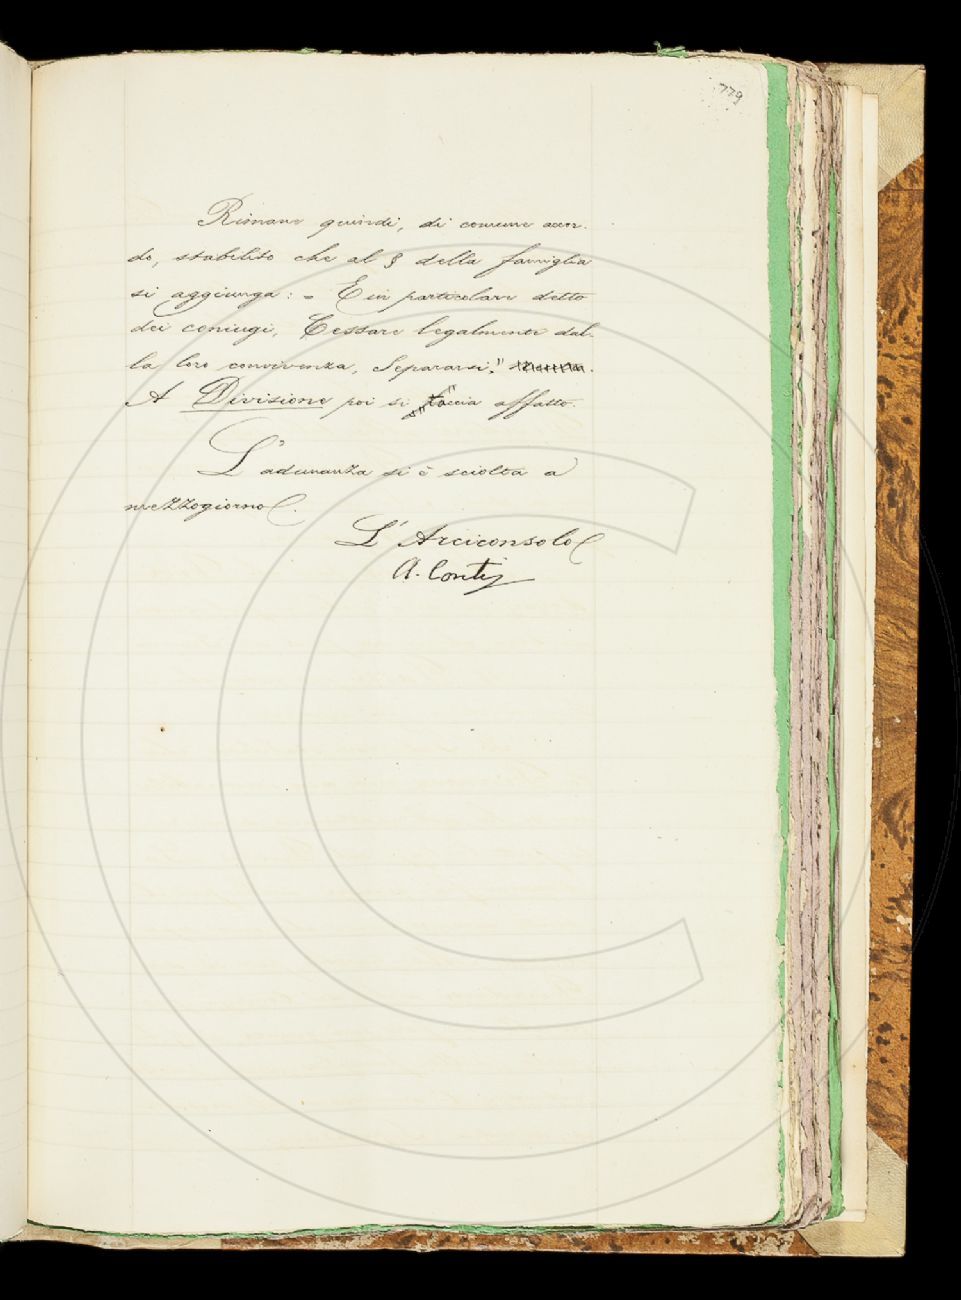 779
Rimane quindi, di comune accor-
do, stabilito che al § della famiglia
si aggiunga: = E in particolare detto
dei coniugi, Cessare legalmente dal-
la loro convivenza, Separarsi."
A Divisione poi si "faccia" affatto.
L'adunanza si è sciolta a
mezzogiorno.
L'Arciconsolo
A. Conti